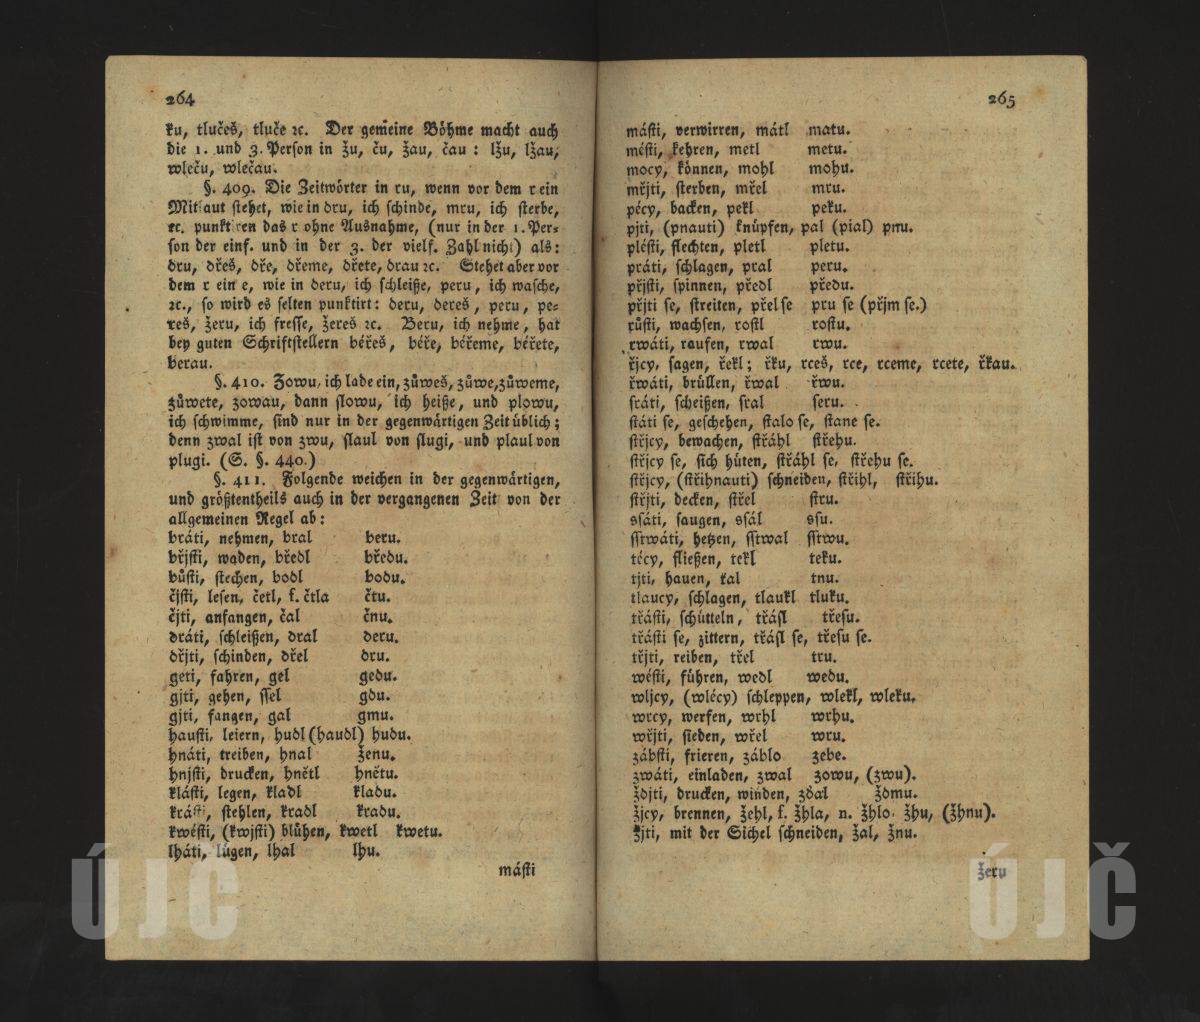 264
ku, tlučeš, tluče ꝛc. Der gemeine Böhme macht auch
die 1. und 3. Person in žu, ču, žau, čau: lžu, lžau,
wleču, wlečau.
§. 409. Die Zeitwörter in ru, wenn vor dem r ein
Mitlaut stehet, wie in dru, ich schinde, mru, ich sterbe,
ꝛc. punktiren das r ohne Ausnahme, (nur in der 1. Per-
son der einf. und in der 3. der vielf. Zahl nicht) als:
dru, dřeš, dře, dřeme, dřete, drau ꝛc. Stehet aber vor
dem r ein e, wie in deru, ich schleiße, peru, ich wasche,
ꝛc., so wird es selten punktirt: deru, dereš, peru, pe-
reš, žeru, ich fresse, žereš ꝛc. Beru, ich nehme, hat
bey guten Schriftstellern béřeš, béře, béřeme, béřete,
berau.
§. 410. Zowu, ich lade ein, zůweš, zůwe, zůweme,
zůwete, zowau, dann slowu, ich heiße, und plowu,
ich schwimme, sind nur in der gegenwärtigen Zeit üblich;
denn zwal ist von zwu, slaul von slugi, und plaul von
plugi. (S. §. 440.)
§. 411. Folgende weichen in der gegenwärtigen,
und größtentheils auch in der vergangenen Zeit von der
allgemeinen Regel ab:
bráti, nehmen, bral beru.
břjsti, waden, bředl bředu.
bůsti, stechen, bodl bodu.
čjsti, lesen, četl, f. čtla čtu.
čjti, anfangen, čal čnu.
dráti, schleißen, dral deru.
dřjti, schinden, dřel dru.
geti, fahren, gel gedu.
gjti, gehen, ssel gdu.
gjti, fangen, gal gmu.
hausti, leiern, hudl (haudl) hudu.
hnáti, treiben, hnal ženu.
hnjsti, drucken, hnětl hnětu.
klásti, legen, kladl kladu.
krásti, stehlen, kradl kradu.
kwésti, (kwjsti) blühen, kwetl kwetu.
lháti, lügen, lhal lhu.
másti
265
másti, verwirren, mátl matu.
mésti, kehren, metl metu.
mocy, können, mohl mohu.
mřjti, sterben, mřel mru.
pécy, backen, pekl peku.
pjti, (pnauti) knüpfen, pal (pial) pnu.
plésti, flechten, pletl pletu.
práti, schlagen, pral peru.
přjsti, spinnen, předl předu.
přjti se, streiten, přel se pru se (přjm se.)
růsti, wachsen, rostl rostu.
rwáti, raufen, rwal rwu.
řjcy, sagen, řekl; řku, rceš, rce, rceme, rcete, řkau.
řwáti, brüllen, řwal řwu.
sráti, scheißen, sral seru.
státi se, geschehen, stalo se, stane se.
střjcy, bewachen, střáhl střehu.
střjcy se, sich hüten, střáhl se, střehu se.
střjcy, (střihnauti) schneiden, střihl, střihu.
střjti, decken, střel stru.
ssáti, saugen, ssál ssu.
sstwáti, hetzen, sstwal sstwu.
técy, fließen, tekl teku.
tjti, hauen, tal tnu.
tlaucy, schlagen, tlaukl tluku.
třásti, schütteln, třásl třesu.
třásti se, zittern, třásl se, třesu se.
třjti, reiben, třel tru.
wésti, führen, wedl wedu.
wljcy, (wlécy) schleppen, wlekl, wleku.
wrcy, werfen, wrhl wrhu.
wřjti, sieden, wřel wru.
zábsti, frieren, záblo zebe.
zwáti, einladen, zwal zowu, (zwu).
ždjti, drucken, winden, ždal ždmu.
žjcy, brennen, žehl, f. žhla, n. žhlo, žhu, (žhnu).
žjti, mit der Sichel schneiden, žal, žnu.
žeru
ÚJČ
ÚJČ